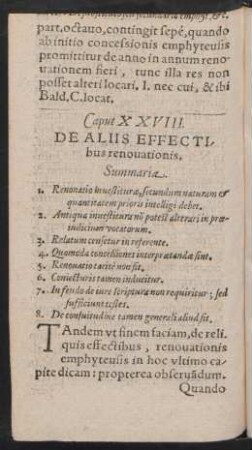 part. octauo, contingit sepè, quando
ab initio concessionis emphyteusis
promittitur de anno in annum reno-
uationem fieri, tunc illa res non
posset alteri locari, l. nec cui, & ibi
Bald. C. locat.
Caput XXVIII.
DE ALIIS EFFECTI-
bus renouationis.
Summaria.
1. Renouatio inuestituræ, secundum naturam &
quantitatem prioris intelligi debet.
2. Antiqua inuestitura nō potest alterari in præ-
iudicium vocatorum.
3. Relatum censetur in referente.
4. Quomodo concessiones interpretandæ sint.
5. Renouatio tacitè non fit.
6. Coniecturis tamen inducitur.
7. In feudo de iure scriptura non requiritur; sed
sufficiunt testes.
8. De consuitudine tamen generali aliud fit.
TAndem vt finem faciam, de reli-
quis effectibus, renouationis
emphyteusis in hoc vltimo ca-
pite dicam: propterea obseruādum.
Quando